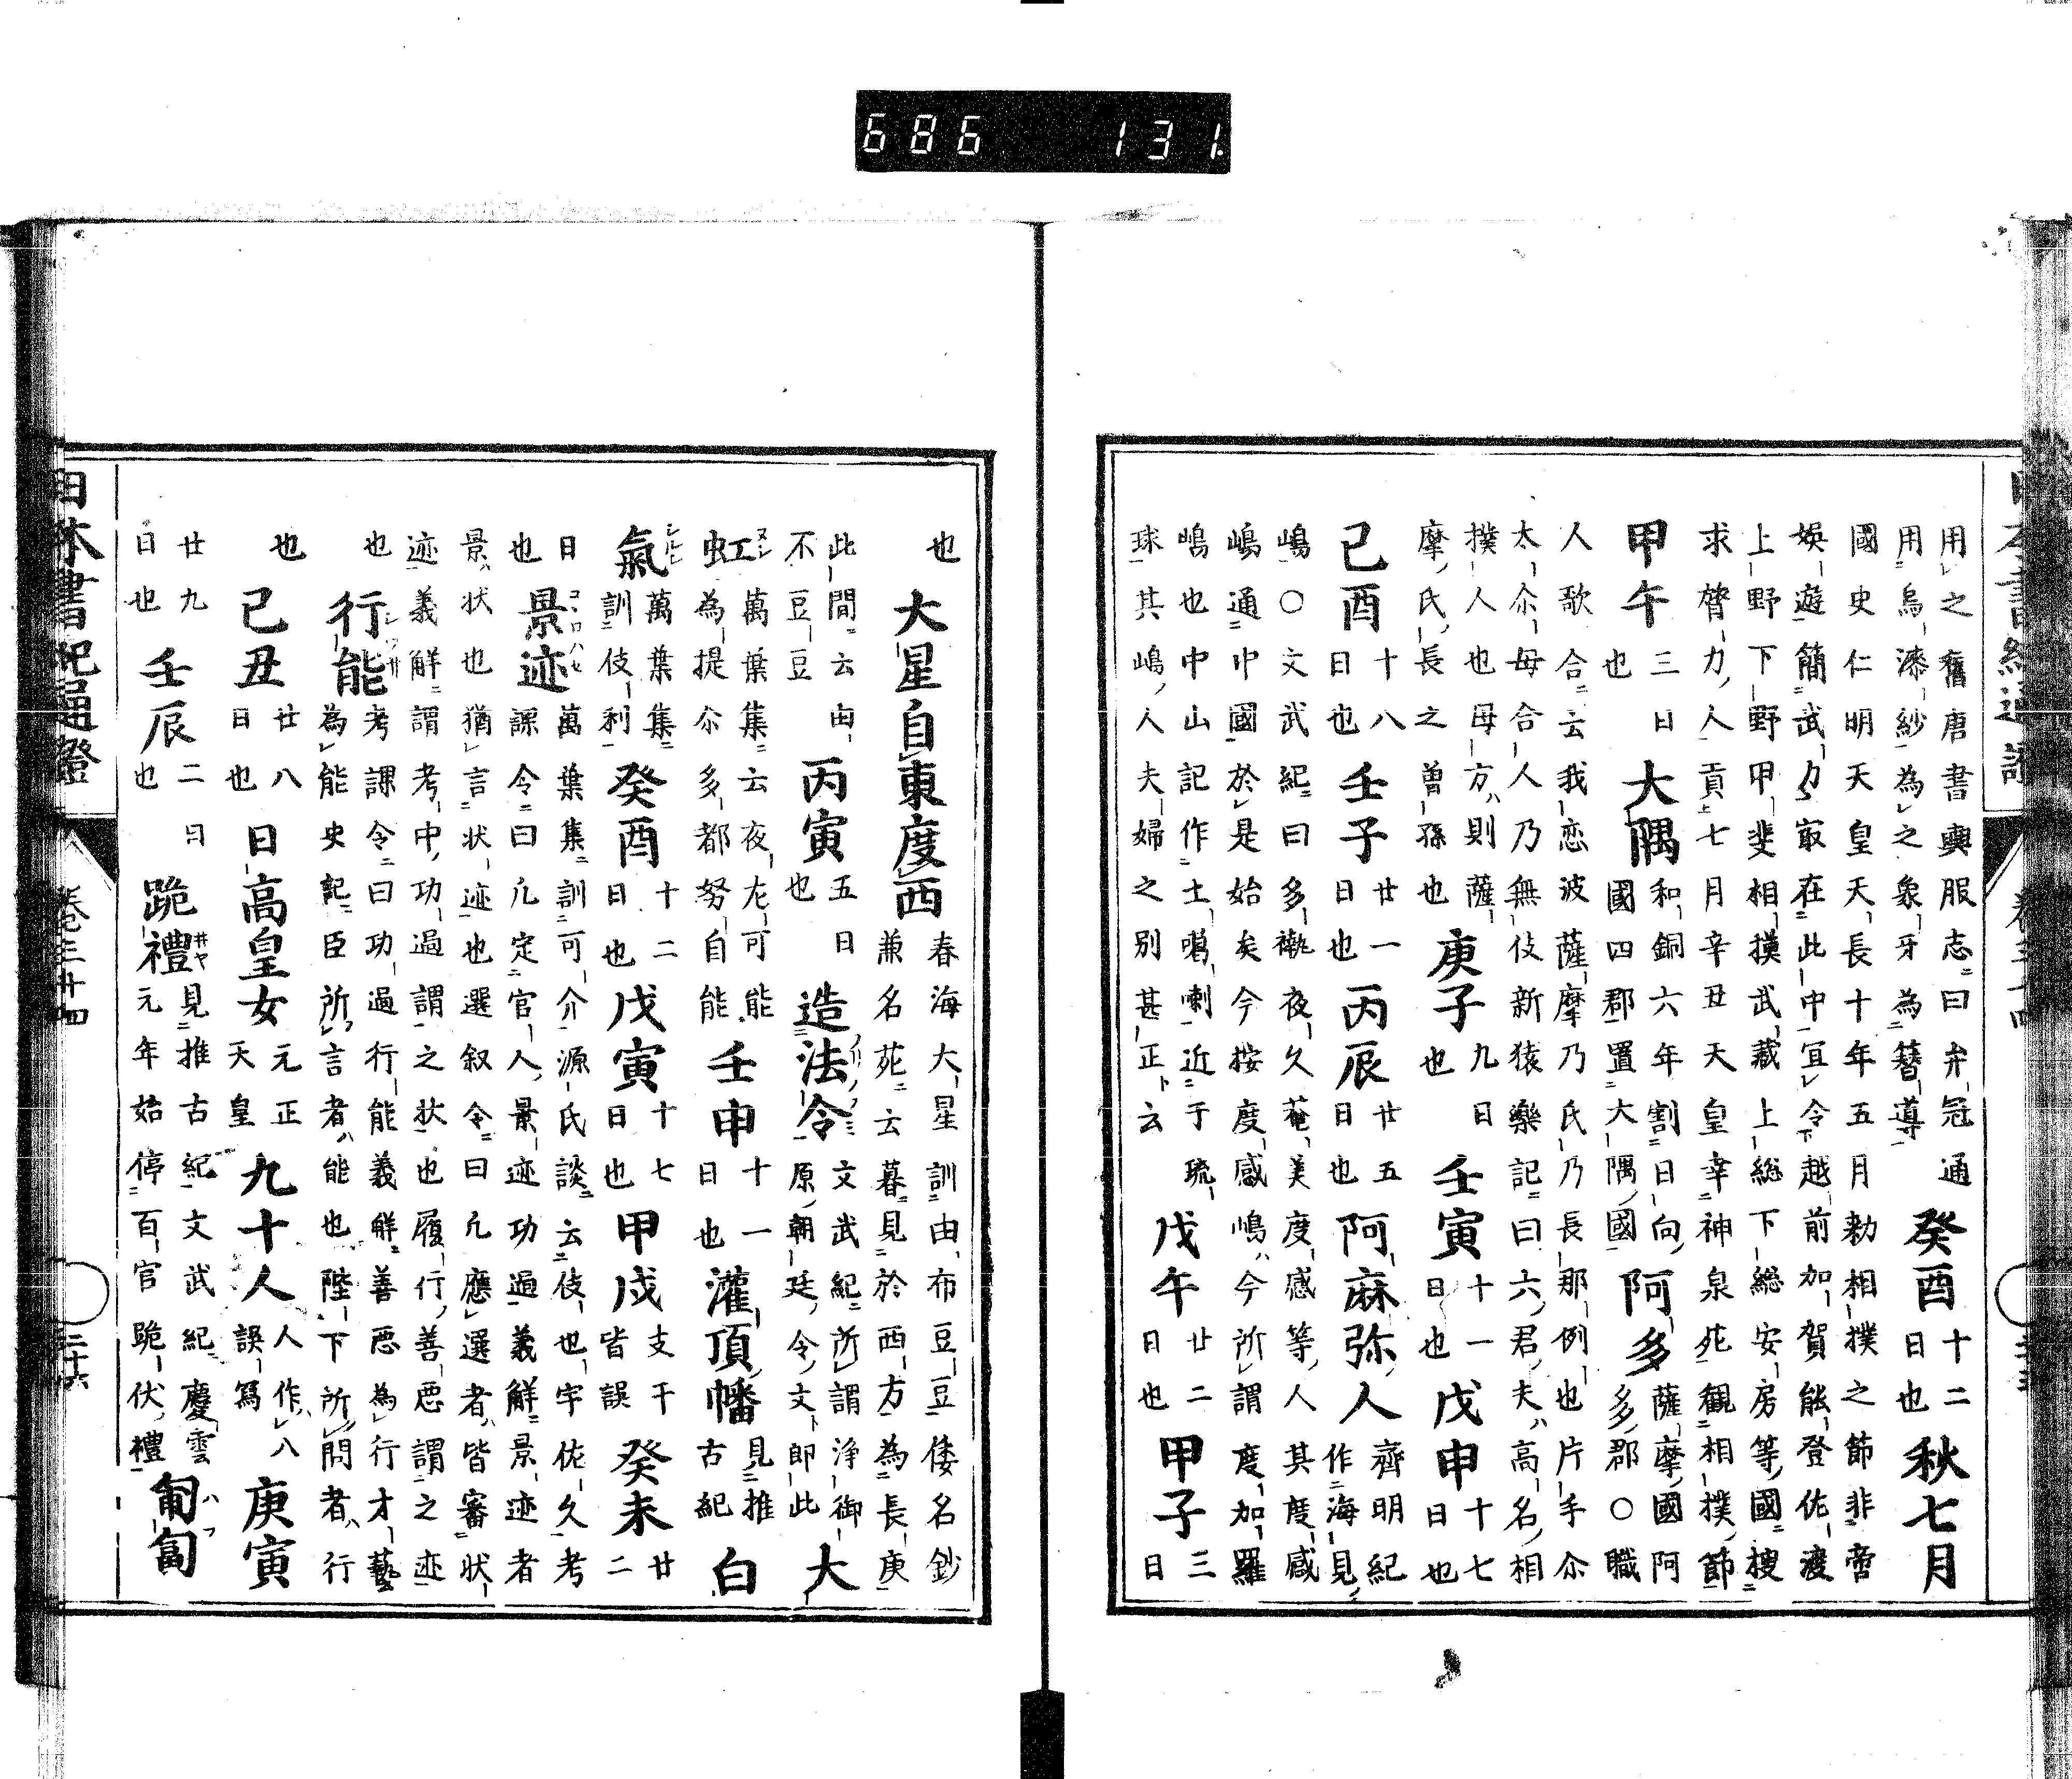 686 131
用之舊唐書輿服志曰弁冠通用烏漆紗為之象牙為簪導 癸酉 十二日也 秋七月
國史仁明天皇天長十年五月勅相撲之節非啻
娯遊簡武力㝡在此中宜令越前加賀能登佐渡
上野下野甲斐相摸武藏上総下総安房等國搜
求膂力人貢七月辛丑天皇幸神泉苑觀相撲節
甲午 三日也 大隅 和銅六年割日向國四郡置大隅國 阿多 薩摩國阿多郡○職
人歌合云我恋波薩摩乃氏乃長那例也片手尓
太尓母合人乃無伎新猿樂記曰六君夫高名相
撲人也母方則薩摩氏長之曽孫也 庚子 九日也 壬寅 十一日也 戊申 十七日也
己酉 十八日也 壬子 廿一日也 丙辰 廿五日也 阿麻弥人 齊明紀作海見
嶋○文武紀曰多褹夜久菴美度感等人其度感
嶋通中國於是始矣今按度感嶋今所謂度加羅
嶋也中山記作土噶喇近于琉球其嶋人夫婦之別甚正云 戊午 廿二日也 甲子 三日
也 大星自東度西 春海大星訓由布豆豆倭名鈔兼名苑云暮見於西方為長庚
此間云由不豆豆 丙寅 五日也 造法令 文武紀所謂浄御原朝廷令文即此 大
虹 萬葉集云夜左可能為提尓多都努自能 壬申 十一日也 灌頂幡 見推古紀 白
氣 萬葉集訓伎利 癸酉 十二日也 戊寅 十七日也 甲戌 支干皆誤 癸未 廿二
日也 景迹 萬葉集訓可介源氏談云伎也字佐久考課令曰凡定官人景迹功過義解景迹者
景状也猶言状迹也選叙令曰凡應選者皆審状
迹義解謂考中功過謂之状也履行善悪謂之迹
也 行能 考課令曰功過行能義解善悪為行才藝為能史記臣所言者能也陛下所問者行
也 己丑 廿八日也 日高皇女 元正天皇 九十人 人作八誤寫 庚寅
廿九日也 壬辰 二日也 跪禮 見推古紀文武紀慶雲元年始停百官跪伏禮 匍匐
日本書紀通證 卷三十四 二十六